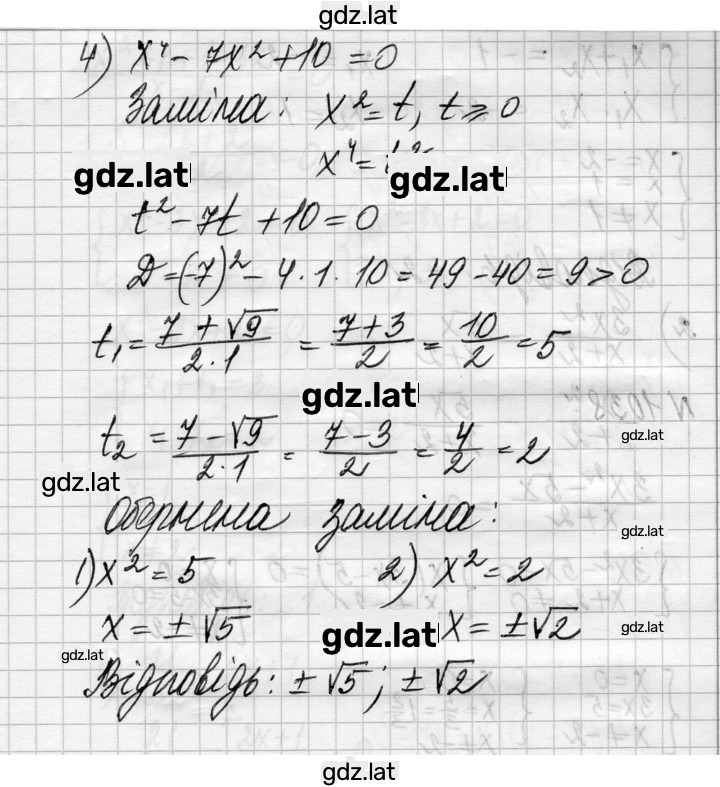 gdz.lat
4) x⁴ - 7x² + 10 = 0
Заміна: x² = t, t ⩾ 0
x⁴ =
gdz.lat gdz.lat
t² - 7t + 10 = 0
D = (-7)² - 4 · 1 · 10 = 49 - 40 = 9 > 0
t₁ = (7 + √9)/(2 · 1) = (7 + 3)/2 = 10/2 = 5
gdz.lat
t₂ = (7 - √9)/(2 · 1) = (7 - 3)/2 = 4/2 = 2
gdz.lat
gdz.lat
Обернена заміна:
gdz.lat
1) x² = 5 2) x² = 2
x = ± √5 gdz.lat x = ± √2 gdz.lat
gdz.lat
Відповідь: ± √5; ± √2
gdz.lat